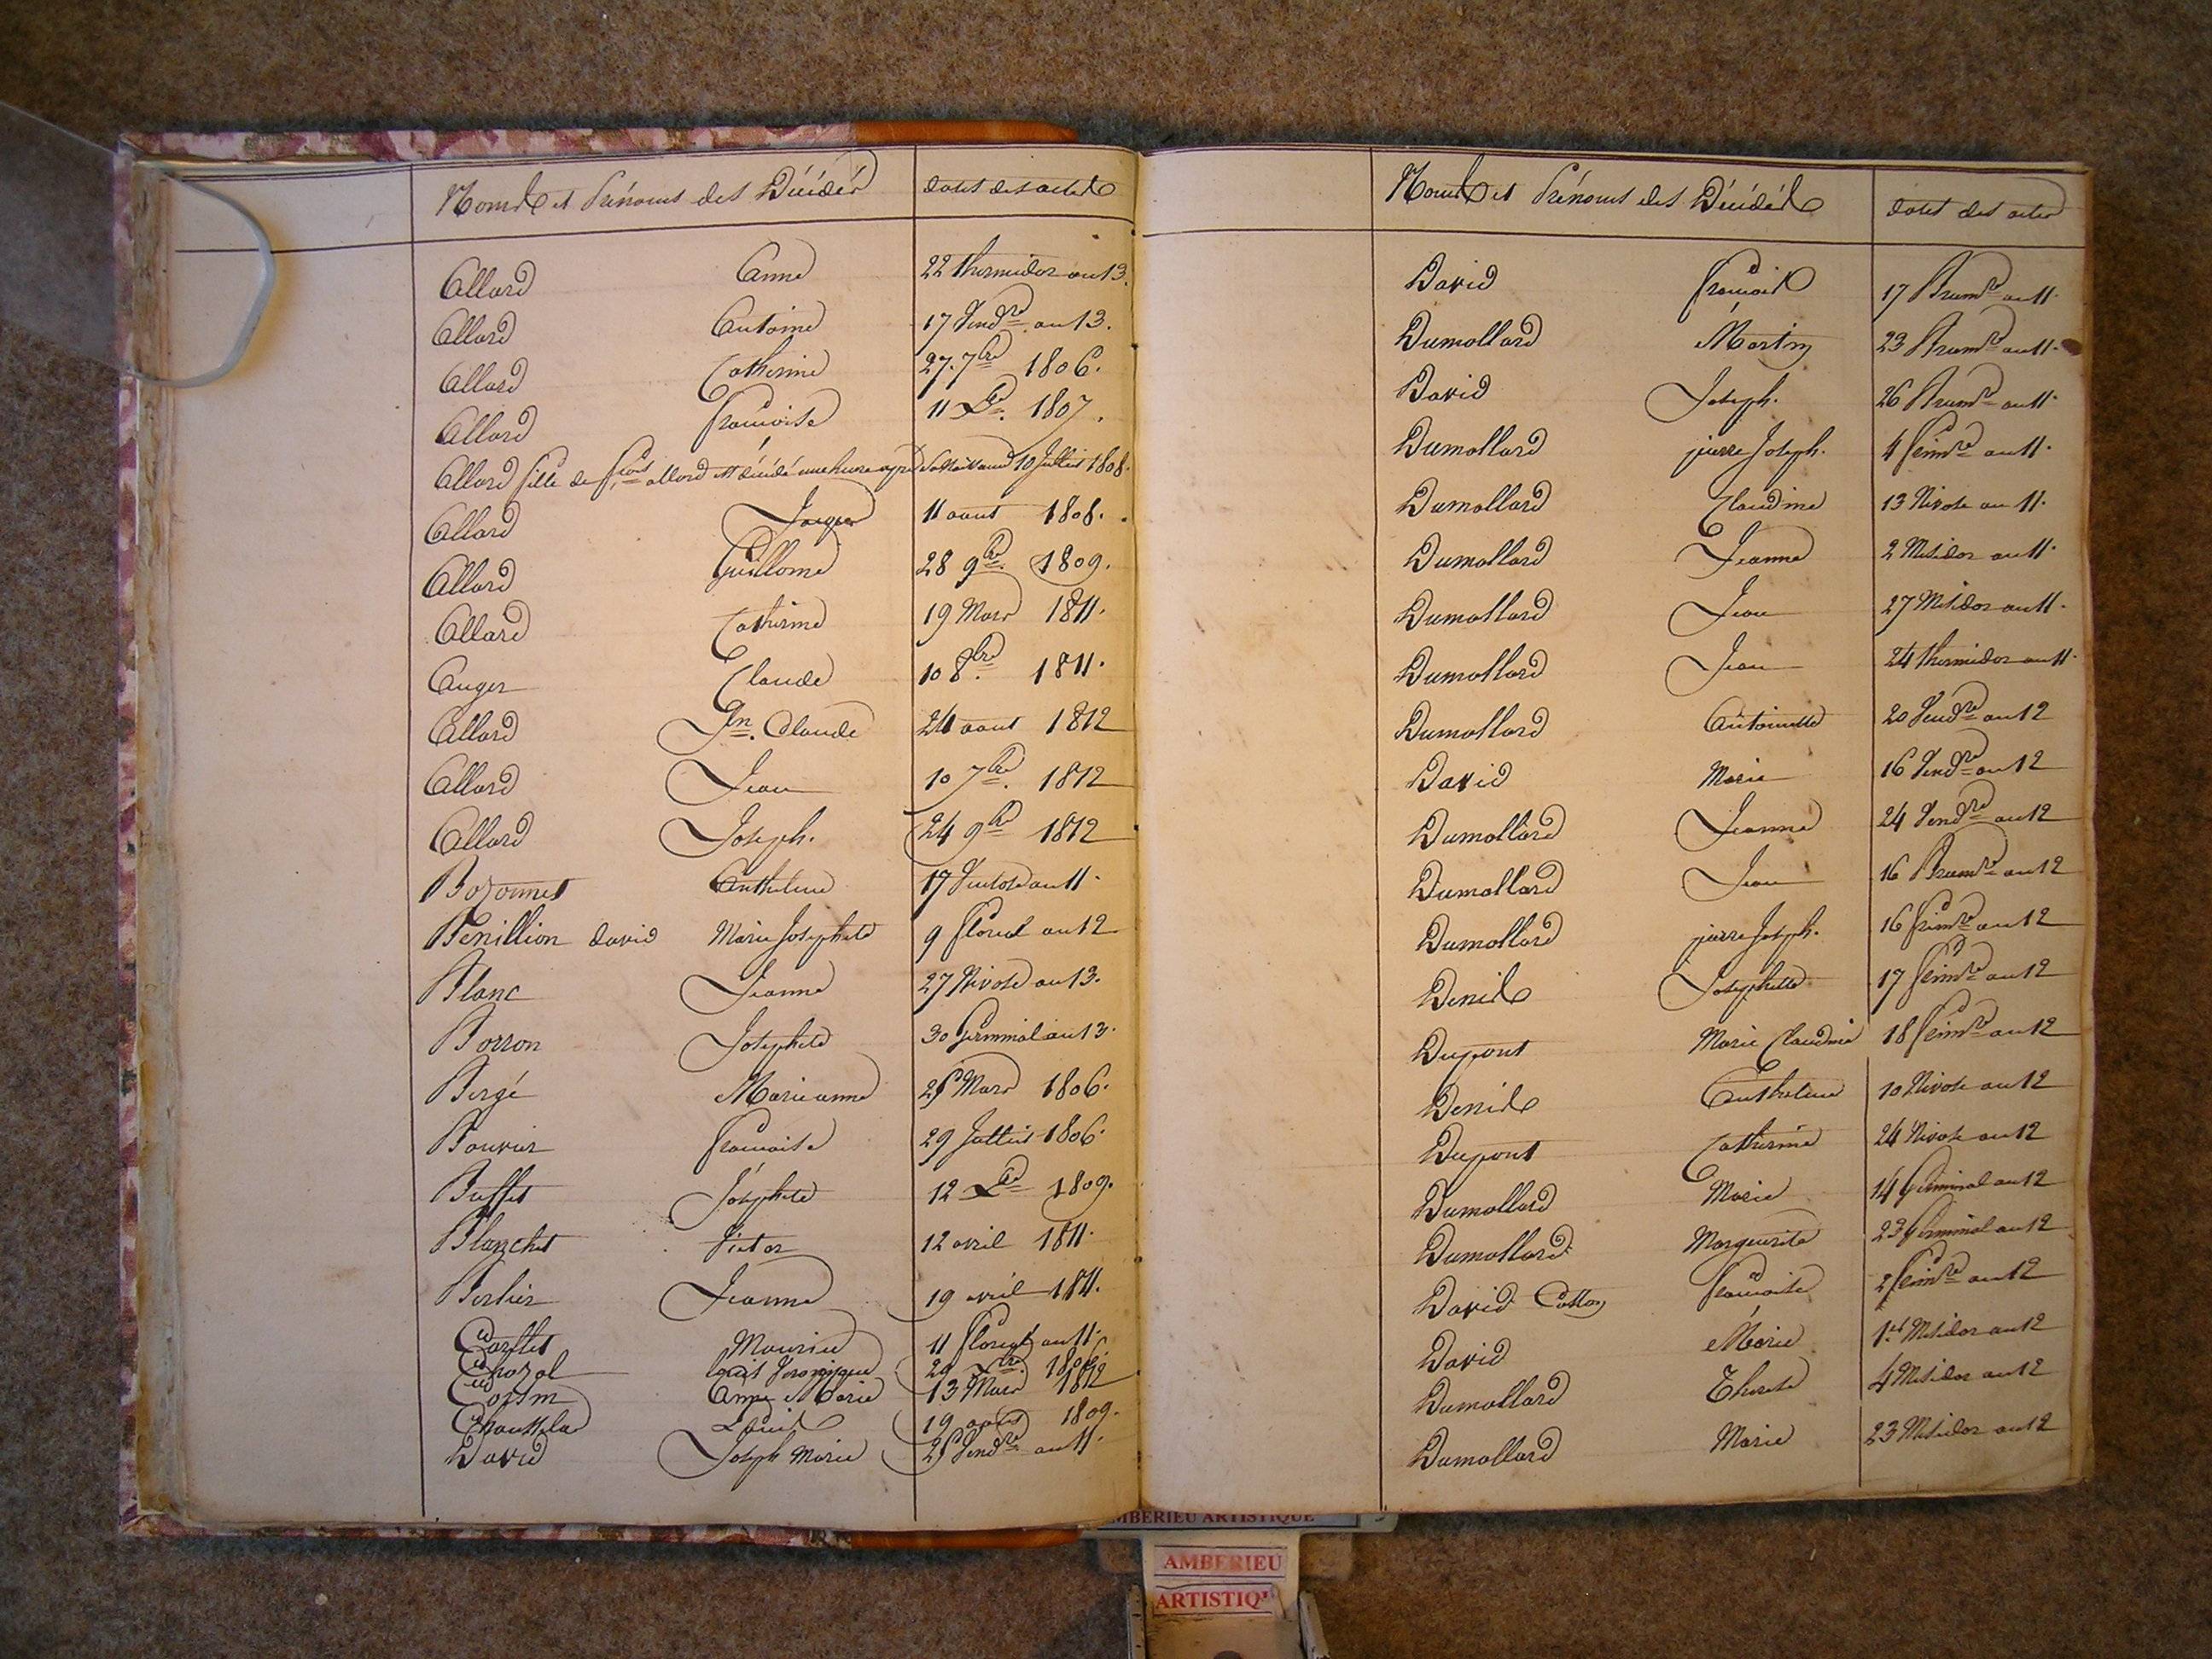 Noms et Prénoms des Décédés dates des actes
Allard Anne 22 thermidor an 13.
Allard Antoine 17 Vend.re an 13.
Allard Catherine 27. 7bre 1806.
Allard françoise 11 Xbre 1807.
Allard fille de fçois allard et décédé une heure après sa naissance 10 Juillet 1808.
Allard Jacques 11 aout 1808.
Allard Guillome 28 9bre 1809.
Allard Catherine 19 Mars 1811.
Auger Claude 10 8bre 1811.
Allard Jn. Claude 24 aout 1812
Allard Jean 10 7bre 1812
Allard Joseph. 24 9bre 1812
Bozonnet Anthelme 17 Ventose an 11.
Benillion david Marie Josephete 9 floreal an 12
Blanc Jeanne 27 Nivose an 13.
Borron Josephete 30 Germinal an 13.
Bergé Marieanne Mars 1806.
Bouvier francoise 29 Juillet 1806.
Buffet Josephete 12 Xbre 1809.
Blanchet Victor 12 avril 1811.
Berlier Jeanne 19 avril 1811.
Maurice 11 floreal an 11.
Chazal Louis
Anne Marie 13 Mars 1812
Louis 19 1809.
David Joseph Marie Vend.re an 11.
Noms et Prénoms des Décédés dates des actes
David françois 17 Brum.re an 11.
Dumollard Martin 23 Brum.re an 11.
David Joseph. 26 Brum.re an 11.
Dumollard pierre Joseph. 4 frim.re an 11.
Dumollard Claudine 13 Nivose an 11.
Dumollard Jeanne 2 Mesidor an 11.
Dumollard Jean 27 Mesidor an 11.
Dumollard Jean 24 thermidor an 11.
Dumollard Antoinette 20 Vend.re an 12
David Marie 16 Vend.re an 12
Dumollard Jeanne 24 Vend.re an 12
Dumollard Jean 16 Brum.re an 12
Dumollard pierre Joseph. 16 frim.re an 12
Denis Josephette 17 frim.re an 12
Dupont Marie Claudine 18 frim.re an 12
Denis Anthelme 10 Nivose an 12
Dupont Catherine 24 Nivose an 12
Dumollard Marie 14 Germinal an 12
Dumollard Marguerite 23 Germinal an 12
David Cotton francoise 2 frim.re an 12
David Marie 1.er Mesidor an 12
Dumollard Therese 4 Mesidor an 12
Dumollard Marie 23 Mesidor an 12
AMBERIEU ARTISTIQUE
AMBERIEU
ARTISTIQ